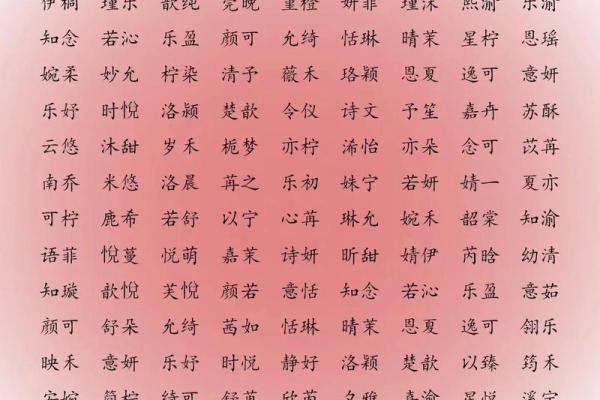 伊桐 瑾乐 歆纯 尧晚 童橙 妍菲 瑾沫 熙渝 乐渝
知念 若沁 乐盈 颜可 允绮 恬琳 晴茉 星柠 恩瑶
婉柔 妙允 柠染 清予 薇禾 珞颖 恩夏 逸可 意妍
乐妤 时悦 洛颖 楚歆 令仪 诗文 予笙 嘉卉 苏酥
云悠 沐甜 岁禾 栀梦 亦柠 浠怡 亦朵 念可 苡苒
南乔 米悠 洛晨 苒之 乐初 姝宁 若妍 婧一 夏亦
可柠 鹿希 若舒 以宁 心苒 琳允 婉禾 韶棠 知渝
语菲 悦蔓 悦萌 嘉茉 诗妍 昕甜 婧伊 芮晗 幼清
知璇 歆悦 芙悦 颜若 意恬 知念 若沁 乐盈 意茹
颜可 舒朵 允绮 茜如 恬琳 晴茉 恩夏 逸可 翎乐
映禾 意妍 乐妤 时悦 静好 洛颖 楚歆 以臻 筠禾
安婉 简柠 绮可 舒 欣芮 夕雅 嘉渝 星悦 溪宁